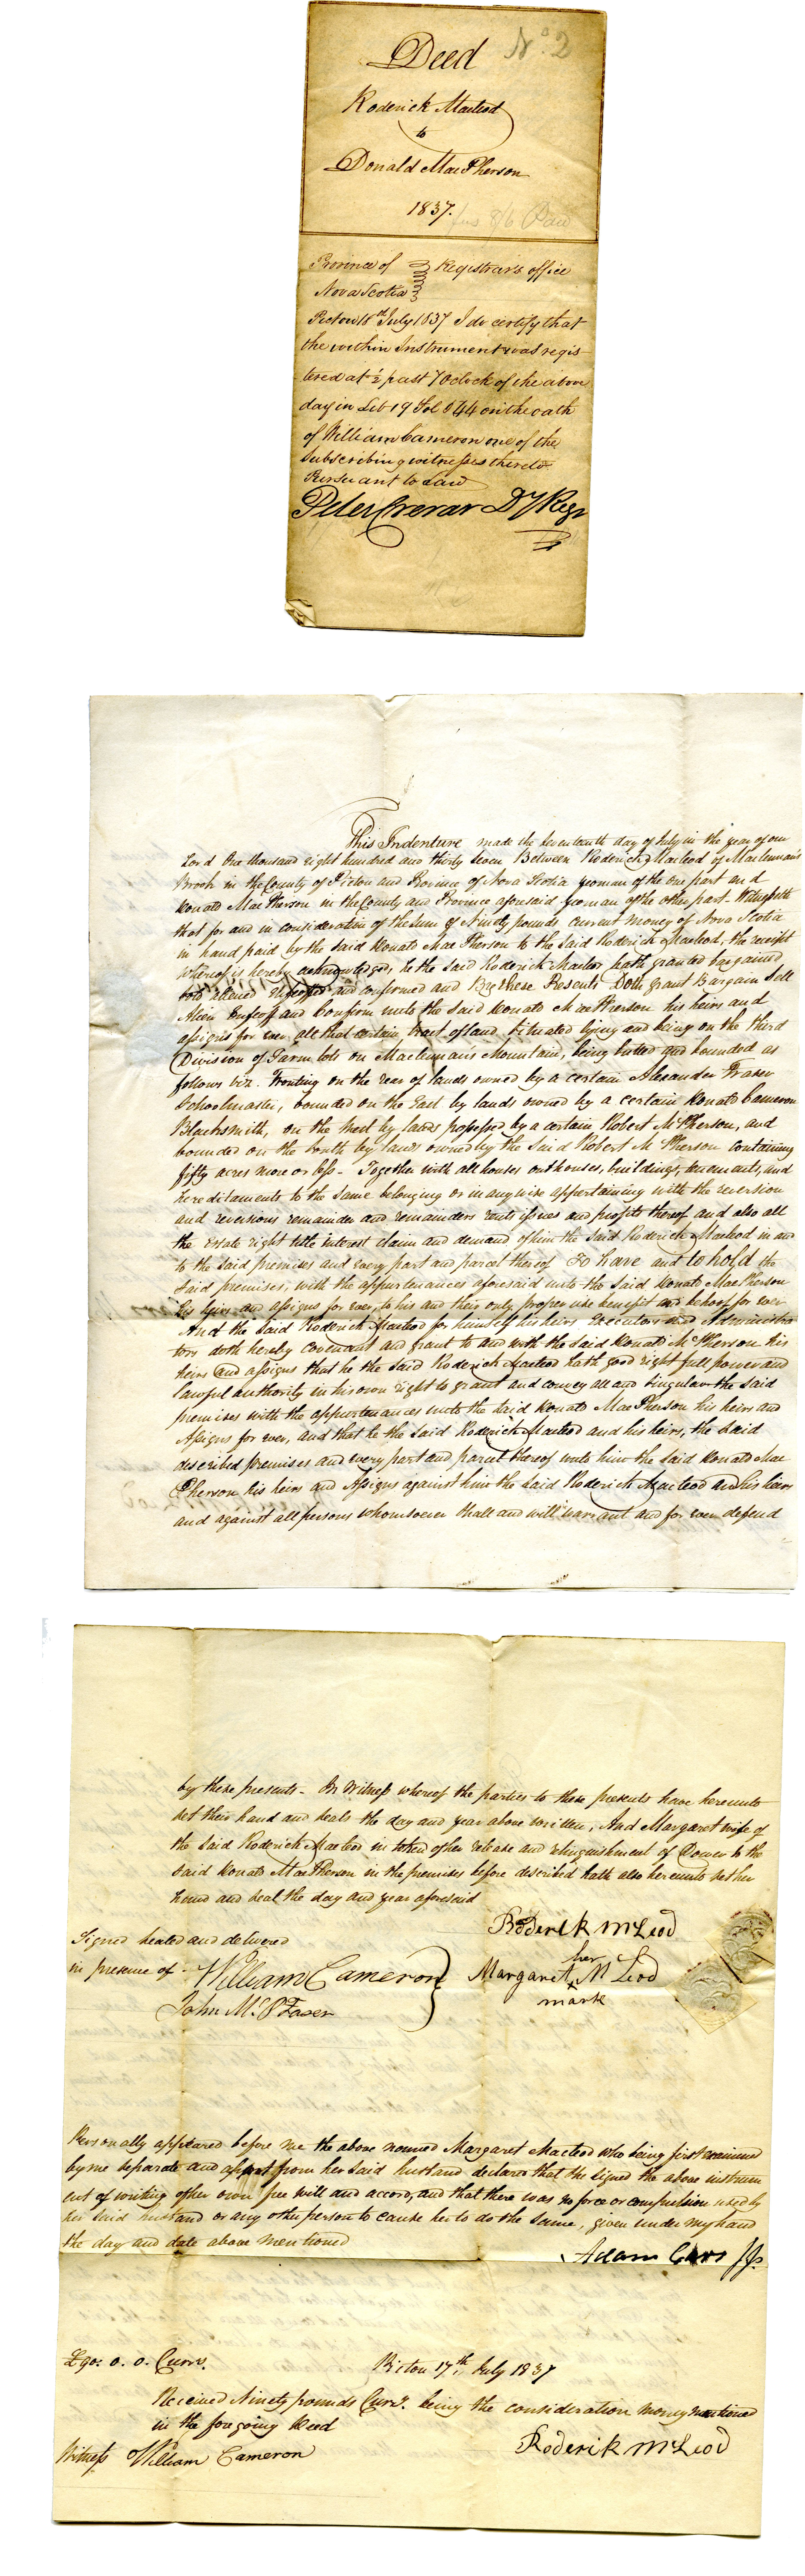 Deed No. 2
Roderick Macleod
to
Donald MacPherson
1837.
8/6 Paid
Province of Registrar's office
Nova Scotia
Pictou 18th July 1837 I do certify that
the within Instrument was regis
tered at ½ past 7 Oclock of the above
day in Lib 19 Fol 644 on the oath
of William Cameron one of the
Subscribing witnesses thereto
Pursuant to Law
Peter Crerar Dy Regr
This Indenture made the seventeenth day of July in the year of our
Lord One thousand eight hundred and thirty seven Between Roderick Macleod of Maclennan's
Brook in the County of Pictou and Province of Nova Scotia yeoman of the one part and
Donald MacPherson in the County and Province aforesaid yeoman of the other part - Witnesseth
that for and in consideration of the sum of Ninety pounds current money of Nova Scotia
in hand paid by the said Donald MacPherson to the said Roderick Macleod, the receipt
whereof is hereby acknowledged, he the said Roderick Macleod hath granted bargained
sold aliened enfeoffed and confirmed and By these Presents Doth grant Bargain Sell
Alien Enfeoff and Confirm unto the said Donald MacPherson his heirs and
assigns for ever all that certain tract of land situated lying and being on the third
Division of Farm lots on Maclennans Mountain, being butted and bounded as
follows viz. Fronting on the rear of lands owned by a certain Alexander Fraser
Schoolmaster, bounded on the East by lands owned by a certain Donald Cameron
Blacksmith, on the West by lands possessed by a certain Robert McPherson, and
bounded on the South by lands owned by the said Robert McPherson containing
fifty acres more or less - Together with all houses outhouses, buildings, tenements, and
hereditaments to the same belonging or in any wise appertaining with the reversion
and reversions remainder and remainders rents issues and profits thereof and also all
the estate right title interest claim and demand of him the said Roderick Macleod in and
to the said premises and every part and parcel thereof To have and to hold the
said premises, with the appurtenances aforesaid unto the said Donald MacPherson
his heirs and assigns for ever, to his and their only proper use benefit and behoof for ever
And the said Roderick Macleod for himself his heirs Executors and Administra
tors doth hereby covenant and grant to and with the said Donald McPherson his
heirs and assigns that he the said Roderick Macleod hath good right full power and
lawful authority in his own right to grant and convey all and singular the said
premises with the appurtenances unto the said Donald MacPherson his heirs and
Assigns for ever, and that he the said Roderick Macleod and his heirs, the said
described premises and every part and parcel thereof unto him the said Donald Mac
Pherson his heirs and Assigns against him the said Roderick Macleod and his heirs
and against all persons whomsoever shall and will warrant and for ever defend
by these presents - In Witness whereof the parties to these presents have hereunto
set their hand and seals the day and year above written, And Margaret wife of
the said Roderick Macleod in token of her release and relinquishment of Dower to the
said Donald MacPherson in the premises before described hath also hereunto set her
hand and seal the day and year aforesaid
Signed sealed and delivered
in presence of
William Cameron
John McP Fraser
Roderik McLeod
her
Margaret x McLeod
mark
Personally appeared before me the above named Margaret Macleod who being first examined
by me separate and apart from her said husband declared that she signed the above instrum
ent of writing of her own free will and accord, and that there was no force or compulsion used by
her said husband or any other person to cause her to do the same, given under my hand
the day and date above mentioned
Adam Carr JP
£90: 0. 0. Curry. Pictou 17th July 1837
Received Ninety pounds Curry. being the consideration money mentioned
in the foregoing Deed
Witness William Cameron
Roderik McLeod